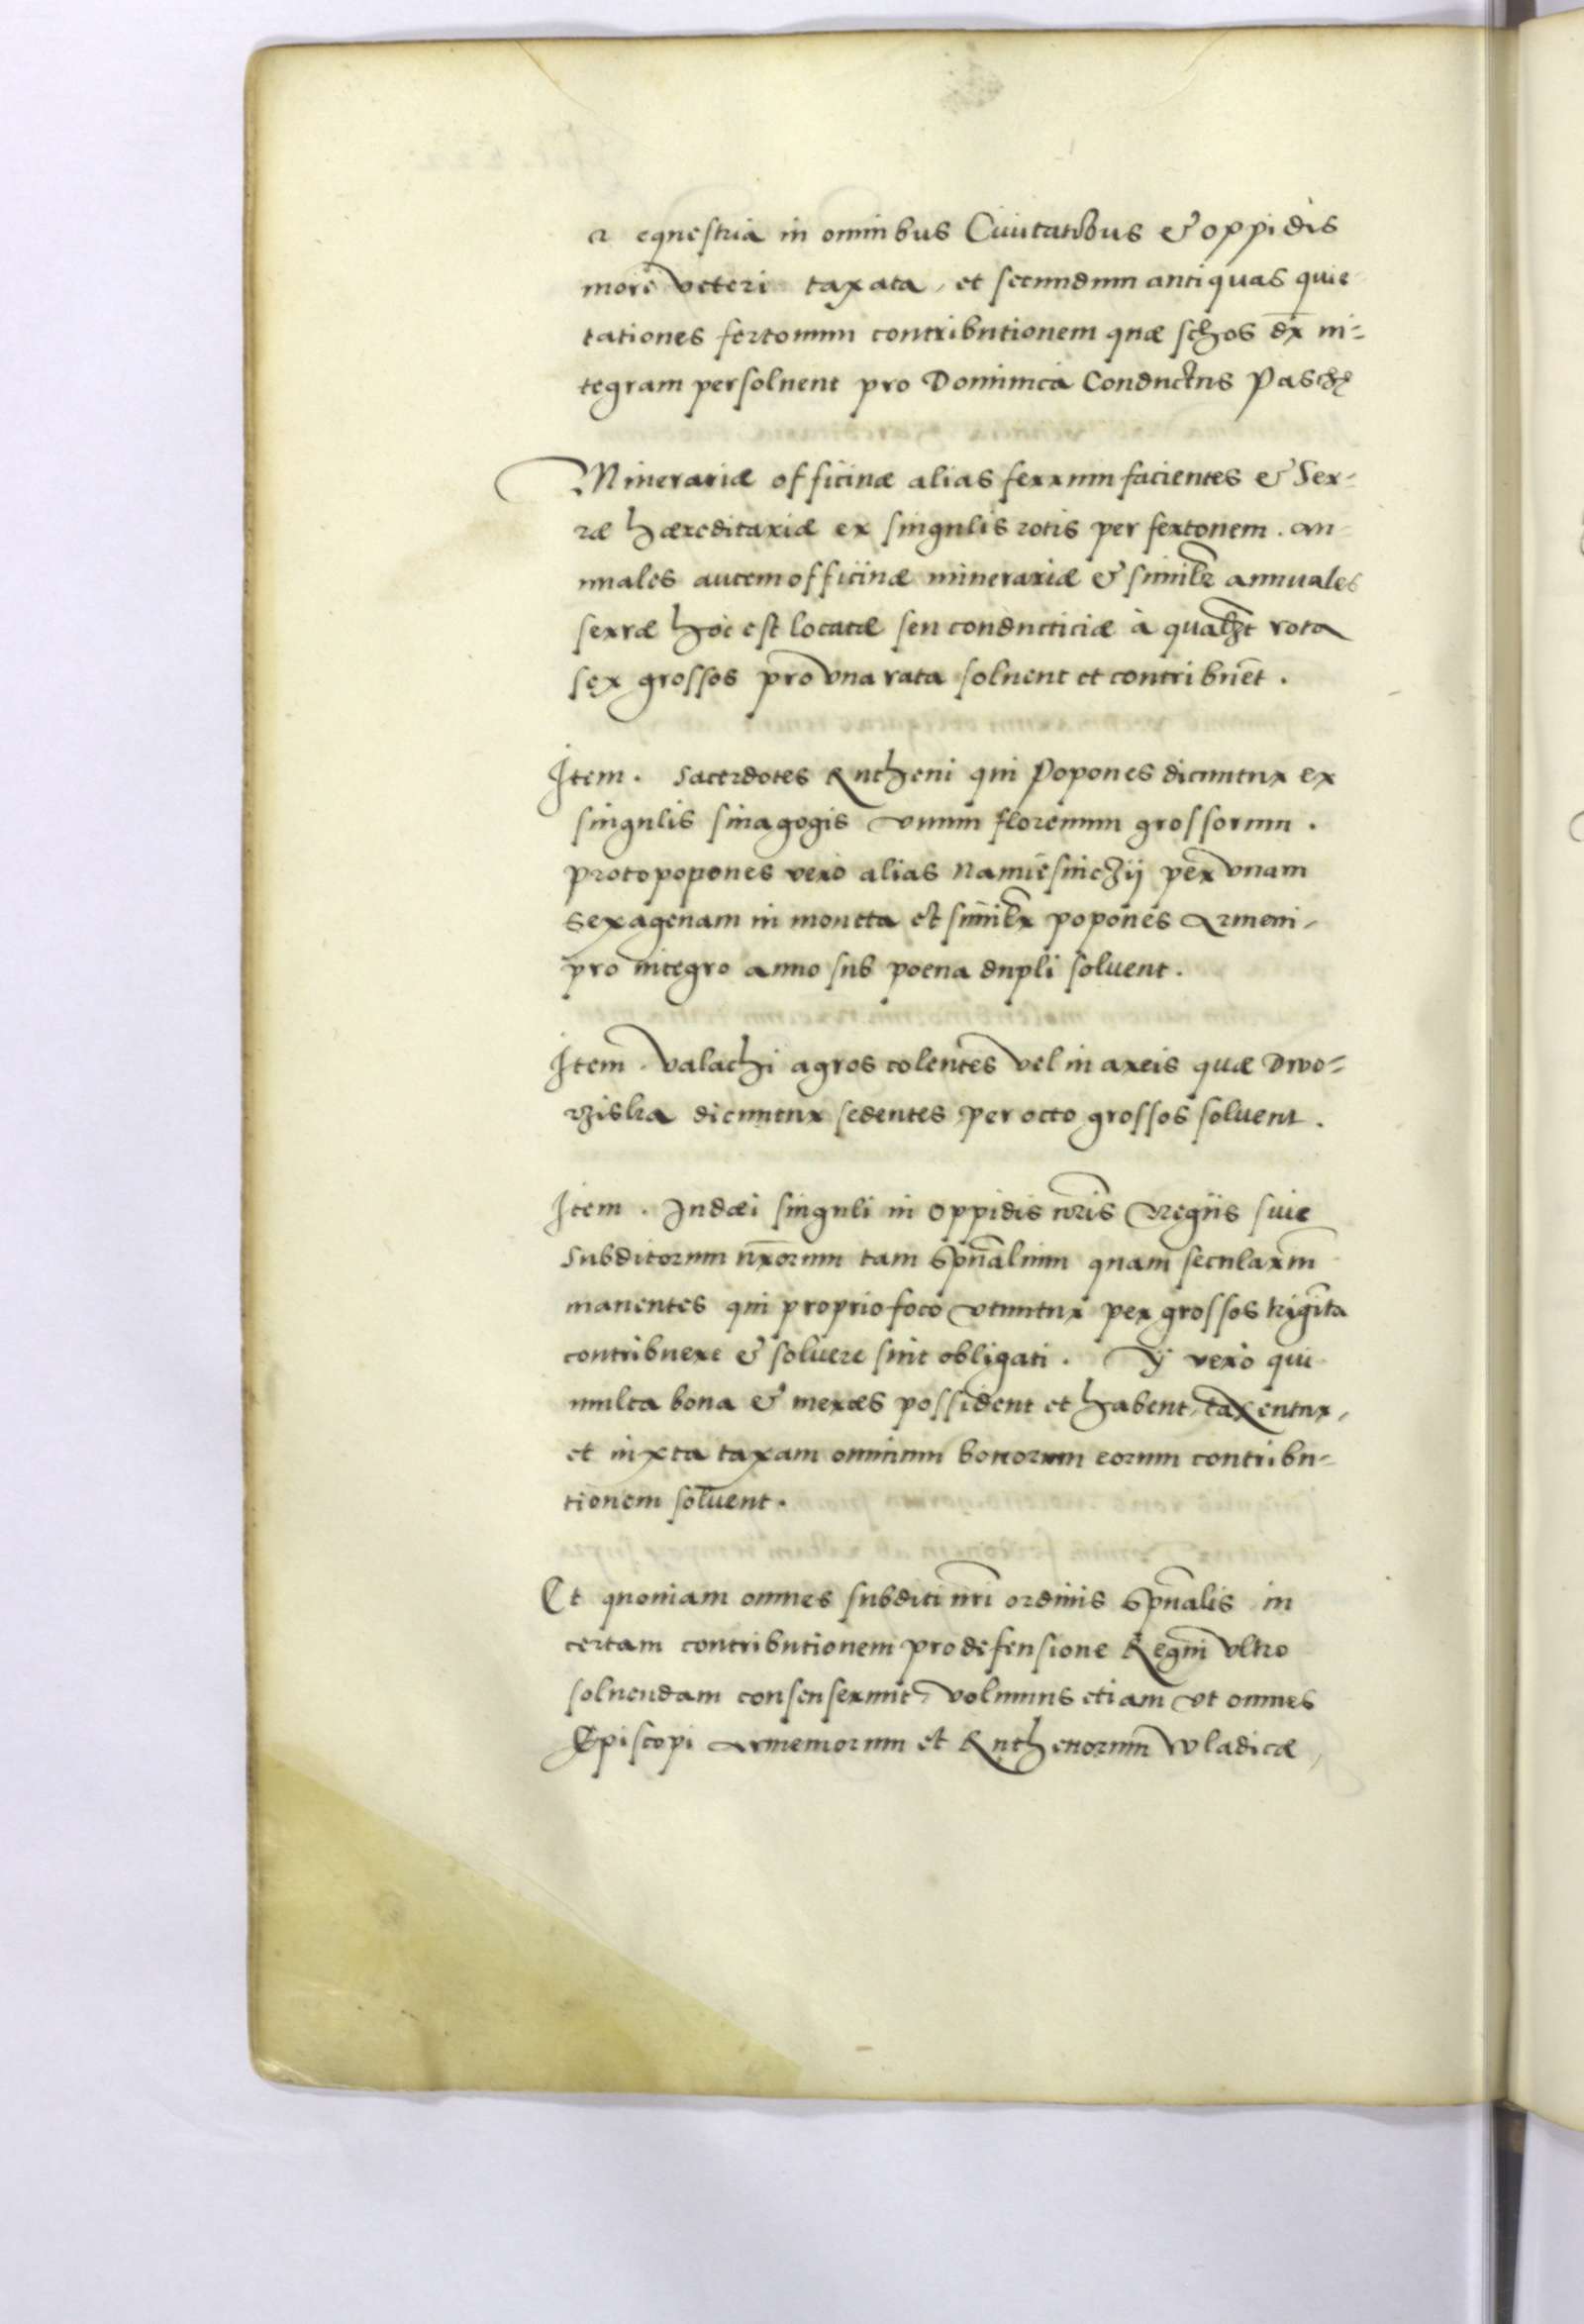 a equestria in omnibus Ciuitatibus & oppidis
more veteri taxata, et secundum antiquas quie
tationes fertonum contributionem quæ schos dr̄ in-
tegram persoluent pro Dominica Conductus Paschę
Minerariæ officinæ alias ferrum facientes & Ser-
ræ hæreditariæ ex singulis rotis per fertonem. an-
nuales autem officinæ minerariæ & similr̄ annuales
serræ hoc est locatæ seu conducticiæ à qualꝫt rota
sex grossos pro vna rata soluent et contribuēt.
Item. Sacerdotes Rutheni qui Popones dicuntur ex
singulis sinagogis vnum florenum grossorum.
protopopones vero alias Namiesniczÿ per vnam
sexagenam in moneta et similr̄ popones Armeni,
pro integro anno sub poena dupli soluent.
Item. Valachi agros colentes vel in areis quæ Dwo-
rziska dicuntur sedentes, per octo grossos soluent.
Item. Judæi singuli in oppidis nr̄is Regiis siue
subditorum nr̄orum tam spūalium quam secularīm
manentes qui proprio foco vtuntur per grossos trigīta
contribuere & soluere sint obligati. Ÿ vero qui
multa bona & merces possident et habent, taxentur,
et iuxta taxam omnium bonorum eorum contribu-
tionem soluent.
Et quoniam omnes subditi nr̄i ordinis spūalis in
certam contributionem pro defensione Regni vltro
soluendam consenserunt, volumus etiam vt omnes
Episcopi Armenorum et Ruthenorum Wladicæ,